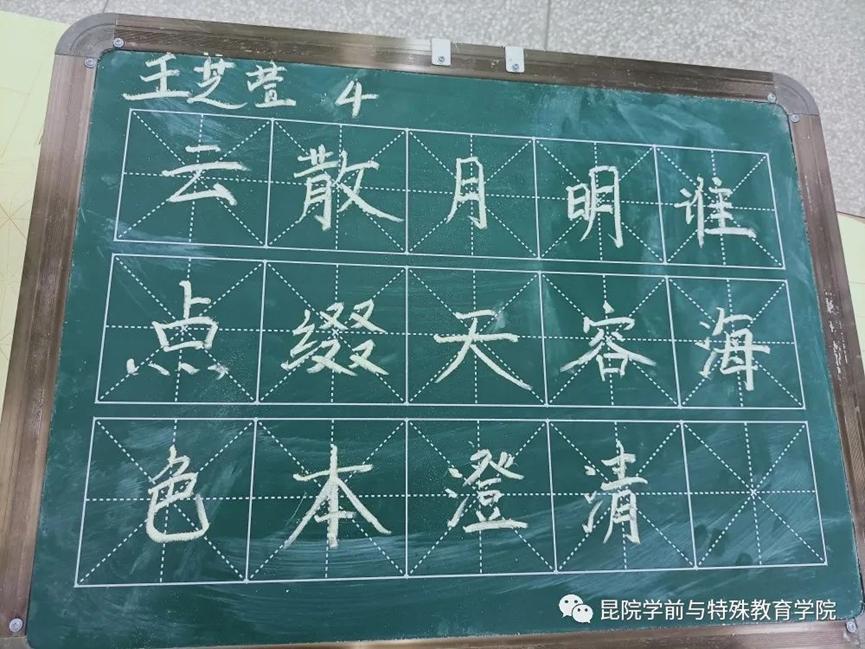 王芝萱 4
云散月明谁
点缀天容海
色本澄清
昆院学前与特殊教育学院